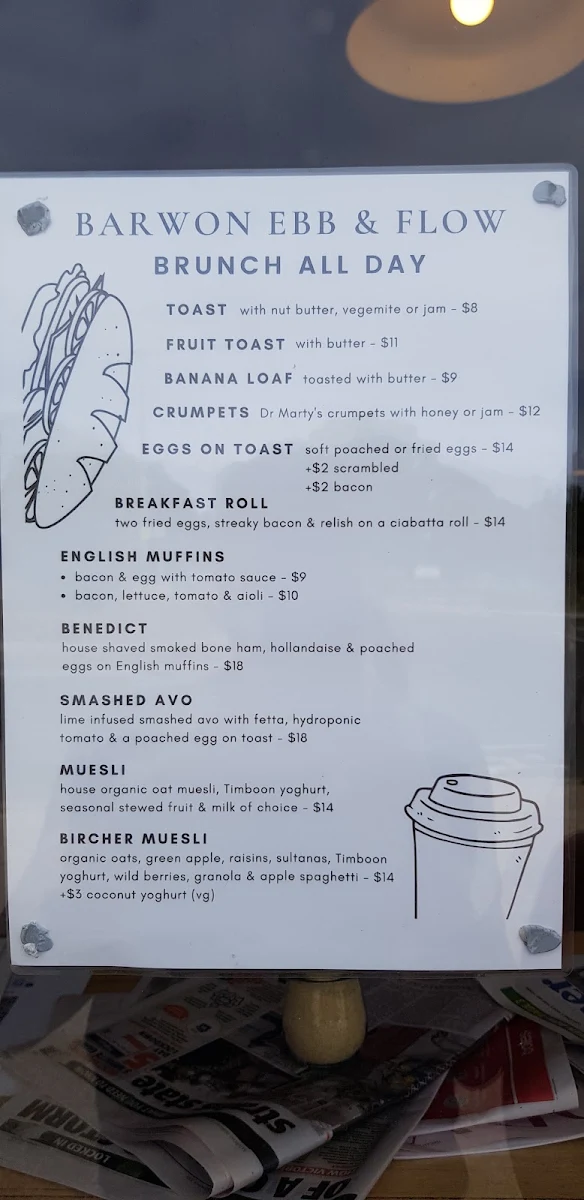 BARWON EBB & FLOW
BRUNCH ALL DAY
TOAST with nut butter, vegemite or jam - $8
FRUIT TOAST with butter - $11
BANANA LOAF toasted with butter - $9
CRUMPETS Dr Marty's crumpets with honey or jam - $12
EGGS ON TOAST soft poached or fried eggs - $14
+$2 scrambled
+$2 bacon
BREAKFAST ROLL
two fried eggs, streaky bacon & relish on a ciabatta roll - $14
ENGLISH MUFFINS
• bacon & egg with tomato sauce - $9
• bacon, lettuce, tomato & aioli - $10
BENEDICT
house shaved smoked bone ham, hollandaise & poached
eggs on English muffins - $18
SMASHED AVO
lime infused smashed avo with fetta, hydroponic
tomato & a poached egg on toast - $18
MUESLI
house organic oat muesli, Timboon yoghurt,
seasonal stewed fruit & milk of choice - $14
BIRCHER MUESLI
organic oats, green apple, raisins, sultanas, Timboon
yoghurt, wild berries, granola & apple spaghetti - $14
+$3 coconut yoghurt (vg)
LOCKED IN
OF A